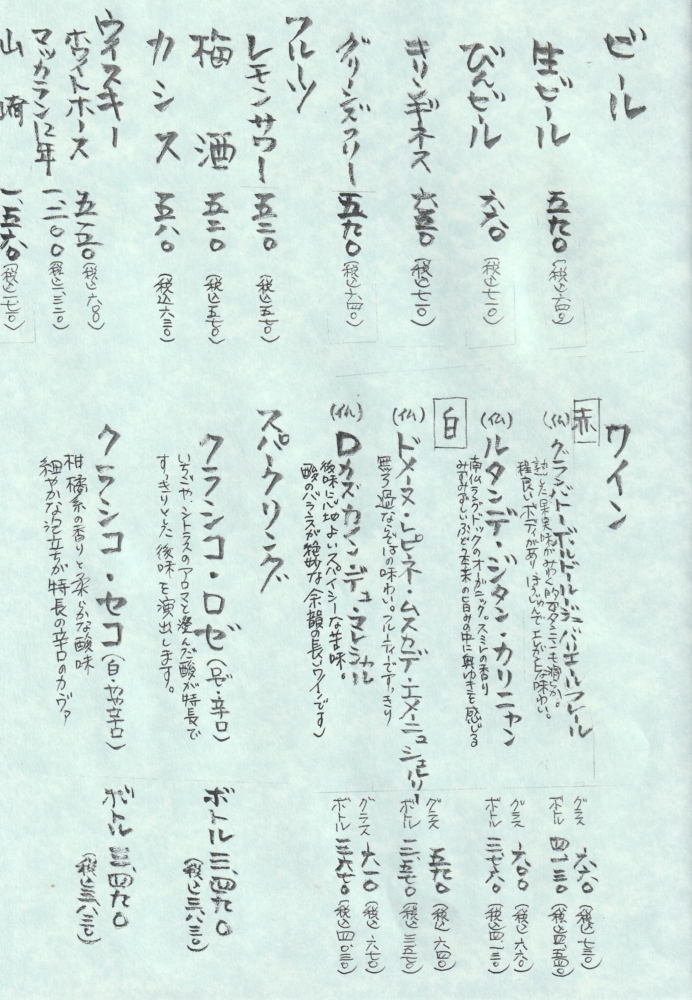 ビール
生ビール 五九〇 (税込六四〇)
びんビール 六六〇 (税込七二〇)
キリンギネス 六五〇 (税込七一〇)
グリーンズフリー 五九〇 (税込六四〇)
フルーツ
レモンサワー 五二〇 (税込五七〇)
梅酒 五二〇 (税込五七〇)
カシス 五八〇 (税込六三〇)
ウイスキー
ホワイトホース 五五〇 (税込六〇〇)
マッカラン12年 一、二〇〇 (税込一、三二〇)
山崎 一、五六〇 (税込一七一〇)
ワイン
赤
(仏) グランバトー・ボルドールージュ・バリエールフレール
熟した果実味がみやく的なタンニンも滑らか。
程良いボディがあり ほうじゅんで エレガントな味わい。
グラス 六六〇 (税込七三〇)
ボトル 四一三〇 (税込四、五四〇)
(仏) ルタンデ・ジタン・カリニャン
南仏ラングドックのオーガニック。スミレの香り
みずみずしいぶどう本来の旨みの中に奥ゆきを感じる
グラス 六〇〇 (税込六六〇)
ボトル 三、七六〇 (税込四、一三〇)
白
(仏) ドメーヌ・レピネ・ムスカデ・エメーニュ シュルリー
無ろ過ならではの味わい。フルーティーですっきり
グラス 五九〇 (税込六四〇)
ボトル (税込三五七〇)
(仏) ロカズカイン デュ・マレシャル
後味に心地よいスパイシーな苦味。
酸のバランスが絶妙な余韻の長いワインです)
グラス 六一〇 (税込六七〇)
ボトル 三、六七〇 (税込四、〇三〇)
スパークリング
クランコ・ロゼ (ロゼ・辛口)
いちごや、シトラスのアロマと澄んだ酸が特長で
すっきりとした後味を演出します。
ボトル 三、四九〇
(税込三八三〇)
クラシコ・セコ (白・やや辛口)
柑橘系の香りと柔らかな酸味
細やかな泡立ちが特長の辛口のカヴァ
ボトル 三、四九〇
(税込三八三〇)